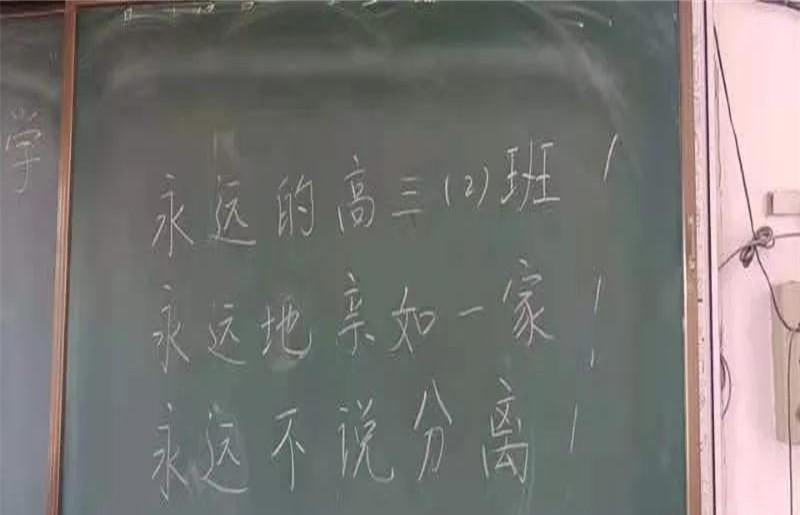 永远的高三(2)班!
永远地亲如一家!
永远不说分离!
学